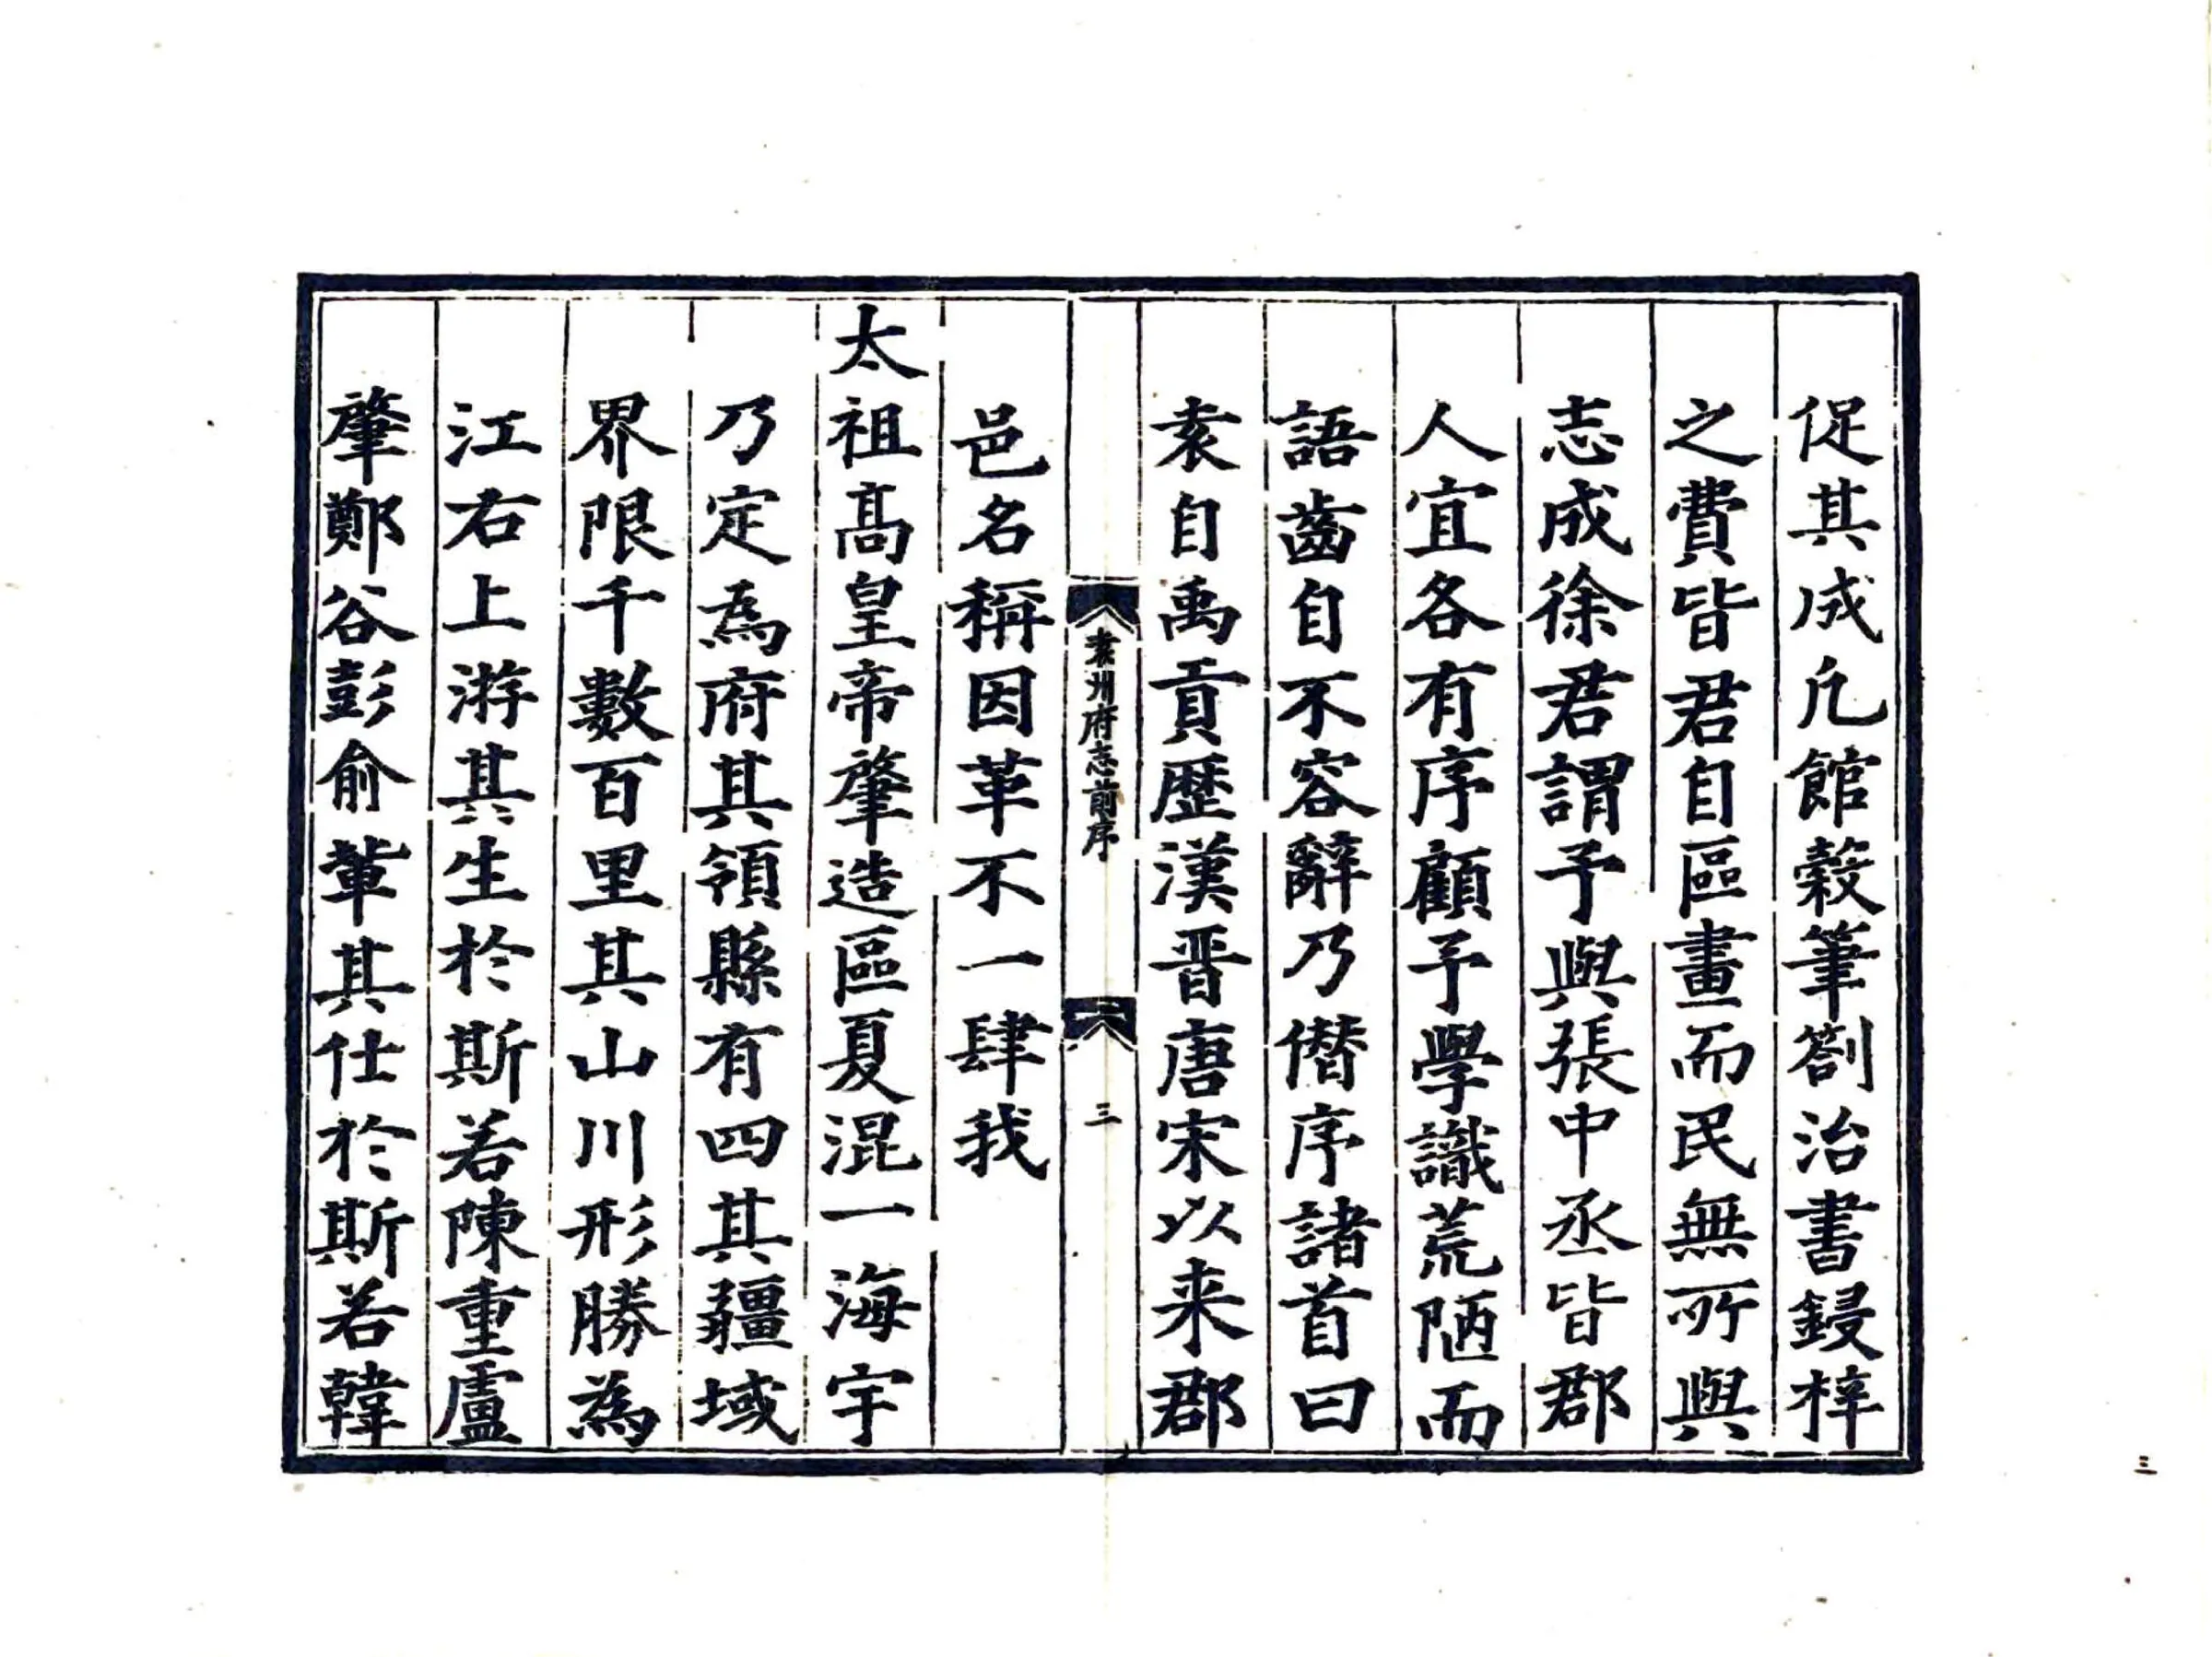 促其成凢館穀筆劄治書鋟梓
之費皆君自區畫而民無所與
志成徐君謂予與張中丞皆郡
人宜各有序顧予學識荒陋而
語齒自不容辭乃僭序諸首曰
袁自禹貢歷漢晋唐宋以来郡
袁州府志前序
三
邑名稱因革不一肆我
太祖髙皇帝肇造區夏混一海宇
乃定為府其領縣有四其疆域
界限千數百里其山川形勝為
江右上游其生於斯若陳重盧
肇鄭谷彭俞軰其仕於斯若韓
三